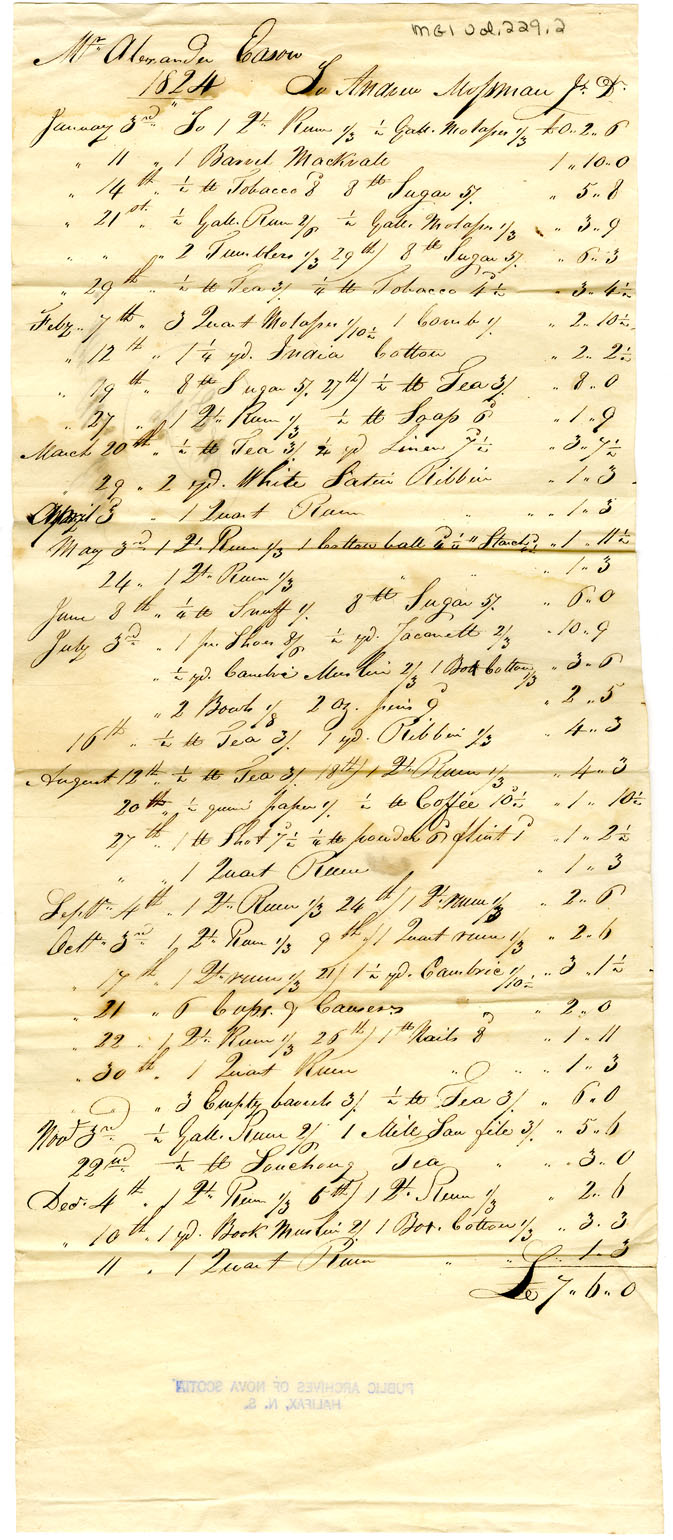 MG1 Vol. 229.2
Mr. Alexander Eason
1824 To Andrew Mossman Jr. Dr.
January 3rd " To 1 Qt. Rum 1/3 ½ Gall. Molasses 1/3 £0 " 2 " 6
" 11 " 1 Barrel Mackrale 1 " 10 " 0
" 14th ½ lb Tobacco 8d 8 lb Sugar 5/. " 5 " 8
" 21st " ½ Gall. Rum 2/6 ½ Gall. Molasses 1/3 " 3 " 9
" " " 2 Tumblers 1/3 29th) 8 lb Sugar 5/. " 6 " 3
" 29th " ½ lb Tea 3/. ¼ lb Tobacco 4½ " 3 " 4½
Feby. 7th " 3 Quart Molasses 1/10½ 1 Comb 1/. " 2 " 10½
" 12th " 1¼ yd. India Cotton " 2 " 2½
" 19th " 8 lb Sugar 5/. 27th) ½ lb Tea 3/. " 8 " 0
" 27 " 1 Qt. Rum 1/3 ½ lb Soap 6d " 1 " 9
March 20th " ½ lb Tea 3/. ¼ yd Linen 7½ " 3 " 7½
" 29 " 2 yd. White Satin Ribbin " 1 " 3
April 3 " 1 Quart Rum " " " 1 " 3
May 3rd " 1 Qt. Rum 1/3 1 Cotton ball 4d ¼ " Starch " 1 " 11½
24 " 1 Qt. Rum 1/3 " " " 1 " 3
June 8th " ¼ lb Snuff 1/. 8 lb Sugar 5/. " 6 " 0
July 3rd " 1 pr Shoes 8/6 ½ yd. Jaconett 2/3 " 10 " 9
" ½ yd. Cambric Muslin 2/3 1 Box Cotton 1/3 " 3 " 6
" 2 Bowls 1/8 2 oz. pins 9d " 2 " 5
16th " ½ lb Tea 3/. 1 yd. Ribbin 1/3 " 4 " 3
August 12th " ½ lb Tea 3/. 18th) 1 Qt. Rum 1/3 " 4 " 3
20th " ½ quire paper 1/. ½ lb Coffee 10½ " 1 " 10½
27th " 1 lb Shot 7½ ¼ lb powder 6d flint 1d " 1 " 2½
" " 1 Quart Rum " 1 " 3
Septr. 4th " 1 Qt. Rum 1/3 24th) 1 Qt. rum 1/3 " 2 " 6
Octr. 3rd " 1 Qt. Rum 1/3 9th) 1 Quart rum 1/3 " 2 " 6
" 17th " 1 Qt. rum 1/3 21) 1½ yd. Cambric 1/10½ " 3 " 1½
" 21 " 6 Cups & Causers " 2 " 0
" 22 " 1 Qt. Rum 1/3 26th) 1 lb Nails 8d " 1 " 11
" 30th " 1 Quart Rum " " " 1 " 3
" " 3 Empty barrels 3/. ½ lb Tea 3/. " 6 " 0
Novr. 3rd ½ Gall. Rum 2/6 1 Mill Saw file 3/. " 5 " 6
22nd " ½ lb Souchong Tea " " " 3 " 0
Decr. 4th " 1 Qt. Rum 1/3 6th) 1 Qt. Rum 1/3 " 2 " 6
" 10th " 1 yd. Book Muslin 2/. 1 Box. Cotton 1/3 " 3 " 3
11 " 1 Quart Rum " " " 1 " 3
£ 7 " 6 " 0
PUBLIC ARCHIVES OF NOVA SCOTIA
HALIFAX, N. S.